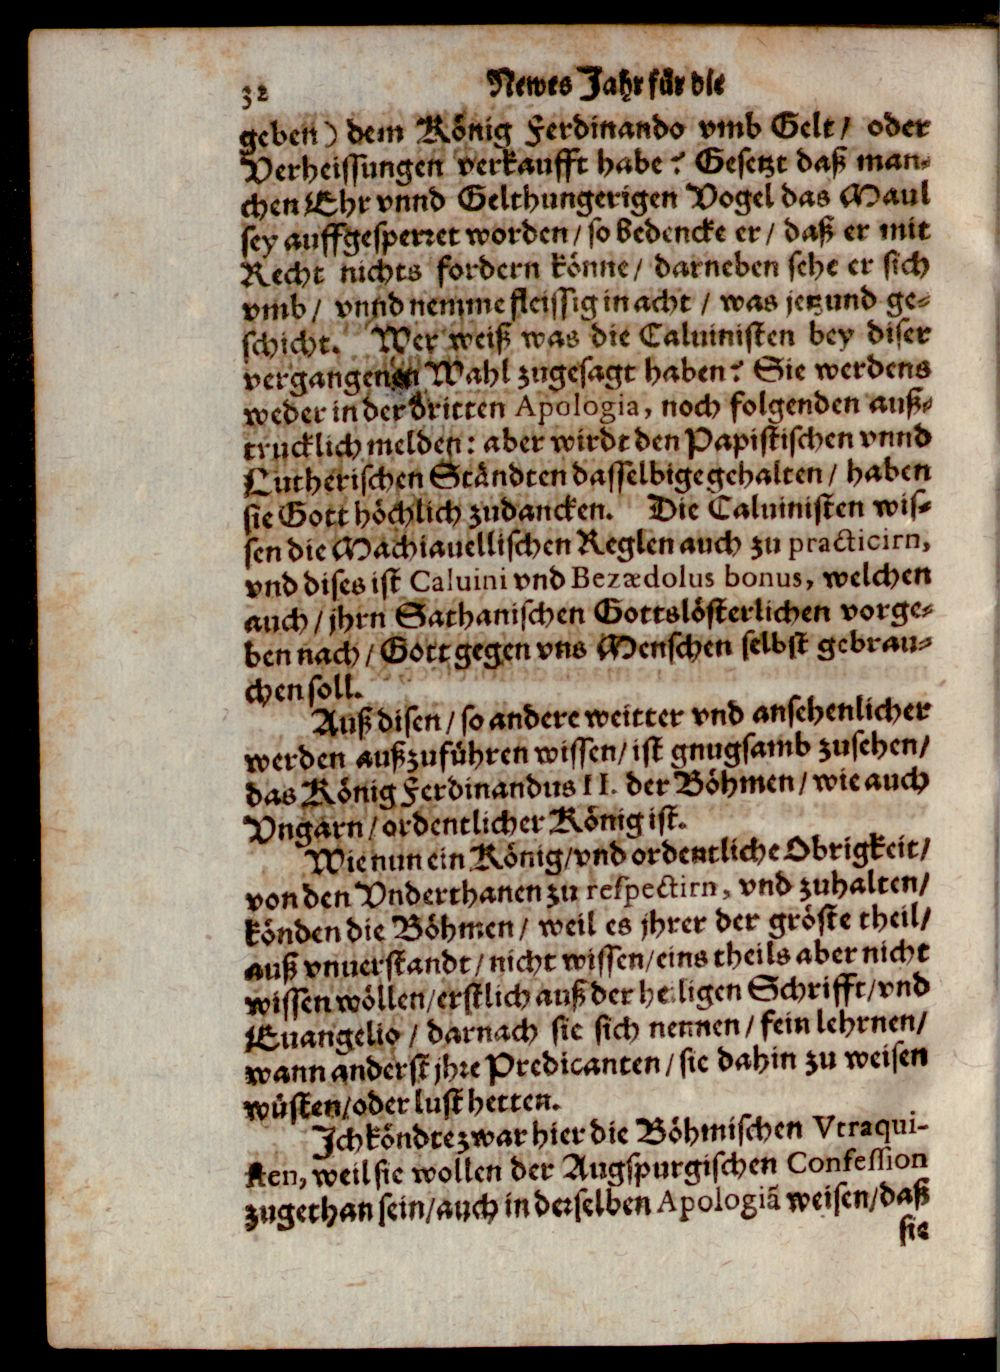 32 Newes Jahr für die
geben) dem König Ferdinando vmb Gelt / oder
Verheissungen verkaufft habe? Gesetzt daß man-
chen Ehr vnnd Gelthungerigen Vogel das Maul
sey auffgesperret worden / so bedencke er / daß er mit
Recht nichts fordern könne / darneben sehe er sich
vmb / vnnd nemme fleissig in acht / was jetzund ge-
schicht. Wer weiß was die Caluinisten bey diser
vergangenen Wahl zugesagt haben? Sie werdens
weder in der dritten Apologia, noch folgenden auß-
trucklich melden: aber wirdt den Papistischen vnnd
Lutherischen Ständten dasselbige gehalten / haben
sie Gott höchlich zudancken. Die Caluinisten wis-
sen die Machiauellischen Reglen auch zu practicirn,
vnd dises ist Caluini vnd Bezædolus bonus, welchen
auch / jhrn Sathanischen Gottslösterlichen vorge-
ben nach / Gott gegen vns Menschen selbst gebrau-
chen soll.
Auß disen / so andere weitter vnd ansehenlicher
werden außzuführen wissen / ist gnugsamb zusehen /
das König Ferdinandus II. der Böhmen / wie auch
Vngarn / ordentlicher König ist.
Wie nun ein König / vnd ordentliche Obrigkeit /
von den Vnderthanen zu respectirn, vnd zuhalten /
könden die Böhmen / weil es jhrer der gröste theil /
auß vnuerstandt / nicht wissen / eins theils aber nicht
wissen wöllen / erstlich auß der heiligen Schrifft / vnd
Euangelio / darnach sie sich nennen / fein lehrnen /
wann anderst jhre Predicanten / sie dahin zu weisen
wüsten / oder lust hetten.
Ich köndte zwar hier die Böhmischen Vtraqui-
sten, weil sie wollen der Augspurgischen Confession
zugethan sein / auch in derselben Apologiā weisen / daß
sie